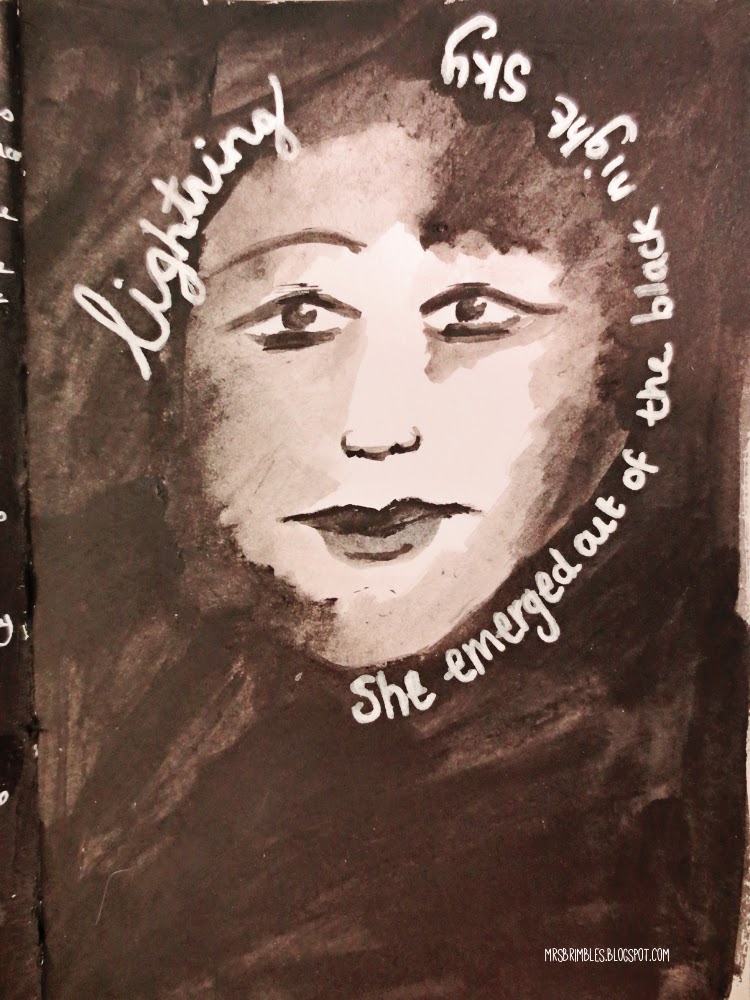 lightning
She emerged out of the black night sky
MRSBRIMBLES.BLOGSPOT.COM